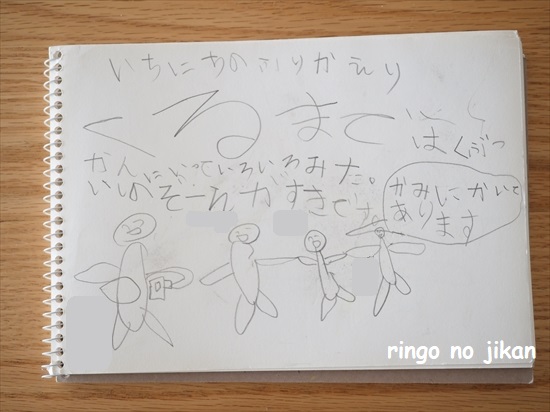 いちにちのふりかえり
くるまで
はくぶつ
かんにいっていろいろみた。
いしのぞーんがすきです。
かみにかいて
あります
ringo no jikan